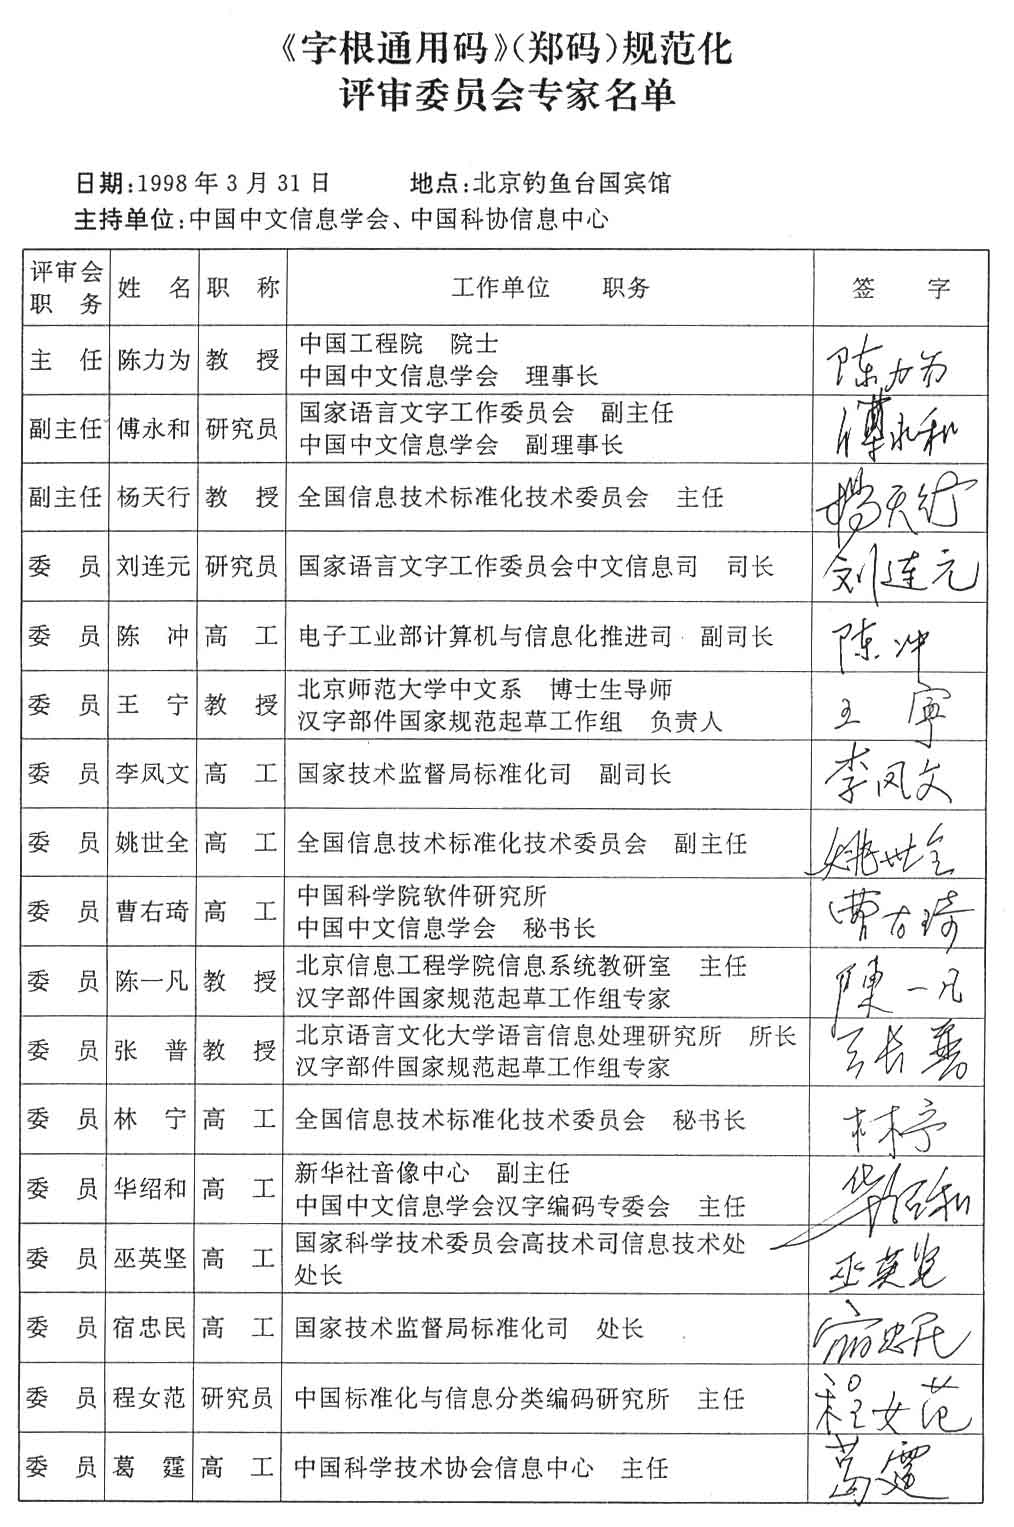 《字根通用码》（郑码）规范化
评审委员会专家名单
日期:1998 年 3 月 31 日 地点:北京钓鱼台国宾馆
主持单位:中国中文信息学会、中国科协信息中心
评审会职务 姓名 职称 工作单位 职务 签字
主任 陈力为 教授 中国工程院 院士 陈力为
中国中文信息学会 理事长
副主任 傅永和 研究员 国家语言文字工作委员会 副主任 傅永和
中国中文信息学会 副理事长
副主任 杨天行 教授 全国信息技术标准化技术委员会 主任 杨天行
委员 刘连元 研究员 国家语言文字工作委员会中文信息司 司长 刘连元
委员 陈冲 高工 电子工业部计算机与信息化推进司 副司长 陈冲
委员 王宁 教授 北京师范大学中文系 博士生导师 王寧
汉字部件国家规范起草工作组 负责人
委员 李凤文 高工 国家技术监督局标准化司 副司长 李凤文
委员 姚世全 高工 全国信息技术标准化技术委员会 副主任 姚世全
委员 曹右琦 高工 中国科学院软件研究所 曹右琦
中国中文信息学会 秘书长
委员 陈一凡 教授 北京信息工程学院信息系统教研室 主任 陳一凡
汉字部件国家规范起草工作组专家
委员 张普 教授 北京语言文化大学语言信息处理研究所 所长 张普
汉字部件国家规范起草工作组专家
委员 林宁 高工 全国信息技术标准化技术委员会 秘书长 林宁
委员 华绍和 高工 新华社音像中心 副主任 华绍和
中国中文信息学会汉字编码专委会 主任
委员 巫英坚 高工 国家科学技术委员会高技术司信息技术处 巫英坚
处长
委员 宿忠民 高工 国家技术监督局标准化司 处长 宿忠民
委员 程女范 研究员 中国标准化与信息分类编码研究所 主任 程女范
委员 葛霆 高工 中国科学技术协会信息中心 主任 葛霆